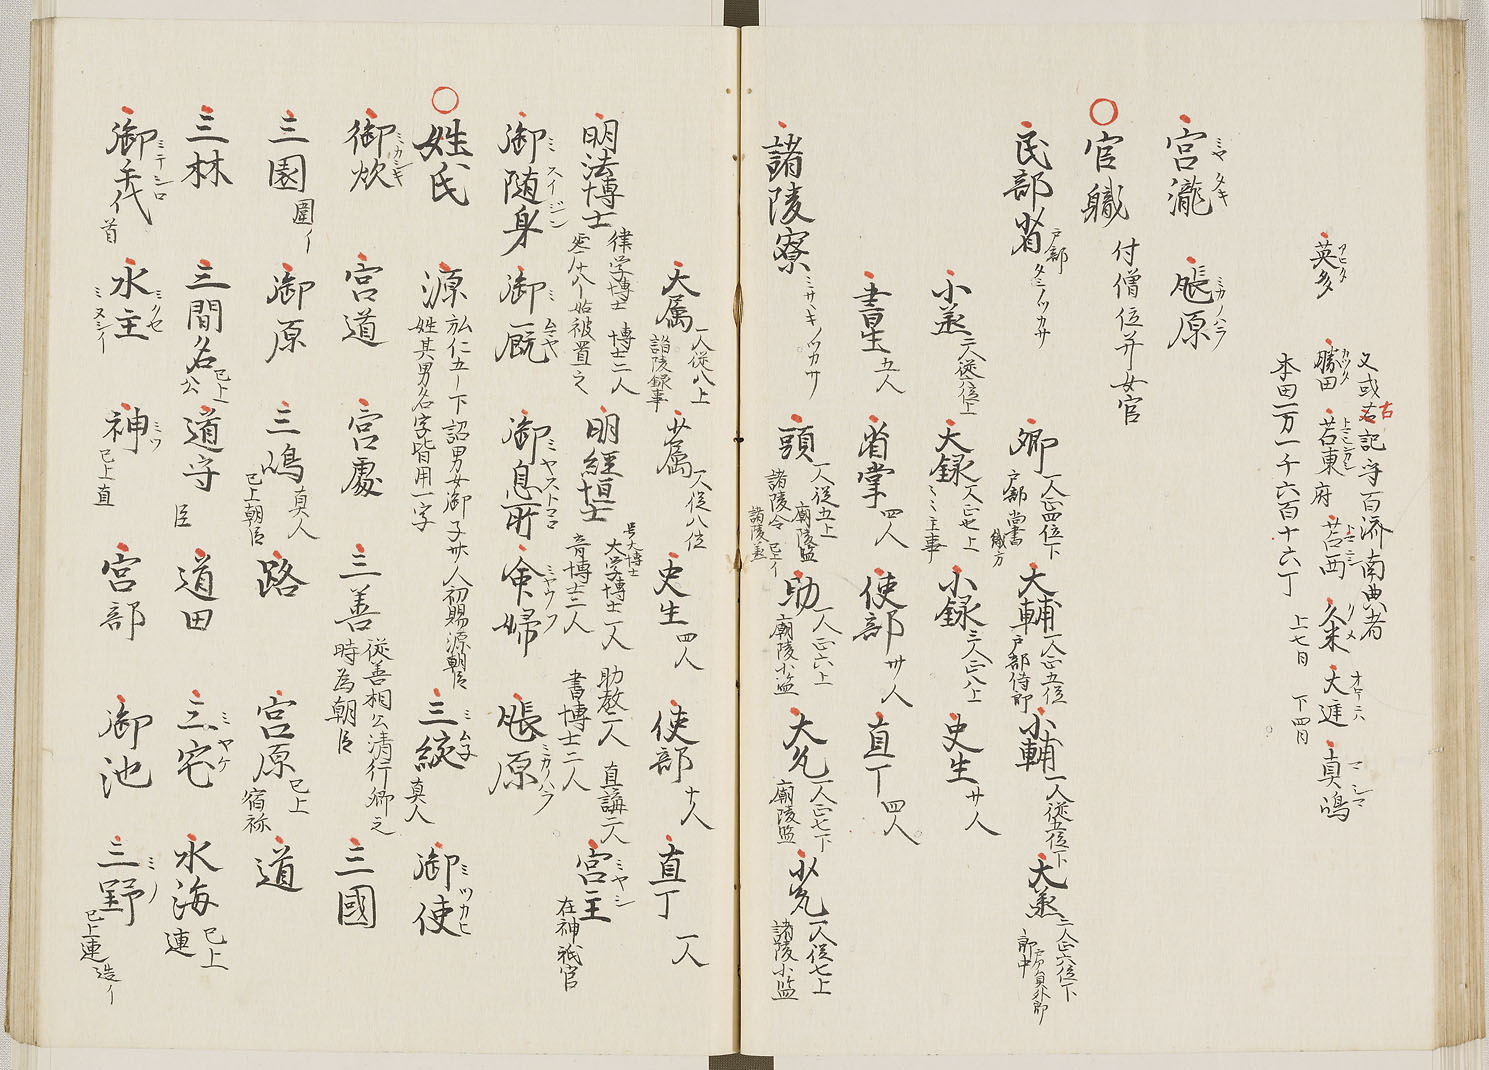 英多 アヒタ 勝田 カツタ 苫東 府 苫西 久米 クメ 大遅 オホチ 真嶋 マシマ
又或右記守百済南典者
本田一万一千六百十六丁 上七日 下四日
宮瀧 ミヤタキ 𤭖原 ミカノハラ
官職 付僧位并女官
民部省 戸部 タミノツカサ 卿 一人正四位下 戸部尚書 大輔 一人正五位 戸部侍郎 少輔 一人従五位下 大丞 二人正六位下 郎中
少丞 二人従六位上 大録 一人正七上 主事 少録 三人正八上 史生 廿人
書生 五人 省掌 四人 使部 卅人 直丁 四人
諸陵寮 ミサキノツカサ 頭 一人従五上 諸陵令 廟陵監 助 一人正六上 廟陵少監 大允 一人正七下 廟陵監 少允 一人従七上 諸陵少監
大属 一人従八上 諸陵録事 少属 一人従八位 史生 四人 使部 十人 直丁 一人
明法博士 律学博士 博士二人 明経博士 大学博士一人 音博士二人 助教二人 直講二人 書博士二人 宮主 ミヤシ 在神祇官
御随身 ミスイジン 御厩 ミムマヤ 御息所 ミヤストコロ 命婦 ミヤウフ 𤭖原 ミカノハラ
姓氏 源 弘仁五ー下詔男女御子卅人初賜源朝臣姓其男名字皆用一字 三綂 真人 御使 ミツカヒ
御炊 ミカシキ 宮道 宮處 三善 従善相公清行卿之時為朝臣 三國
三園 圍イ 御原 三嶋 真人 已上朝臣 路 宮原 已上宿祢 道
三林 三間名 已上公 道守 臣 道田 三宅 ミヤケ 水海 已上連
御手代 ミテシロ 首 水主 神 ミワ 已上直 宮部 御池 三野 ミノ 已上連 造イ